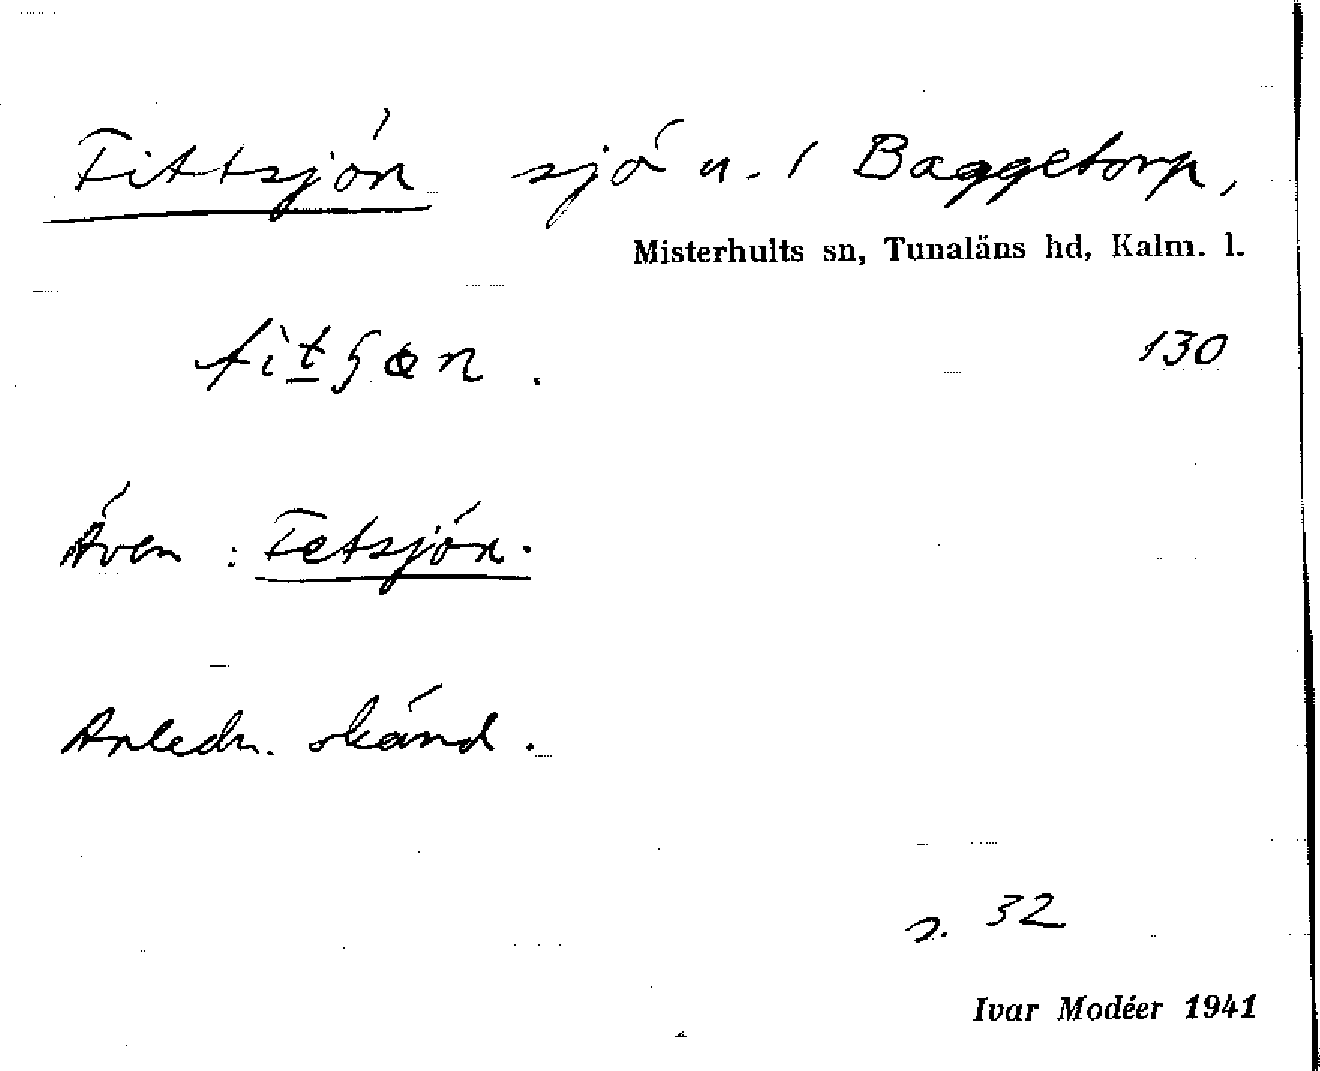 Fittsjön sjö u. / Baggetorp,
Misterhults sn, Tunaläns hd, Kalm. l.
130
Även : Fetsjön.
Anledn. okänd.
s. 32
Ivar Modéer 1941